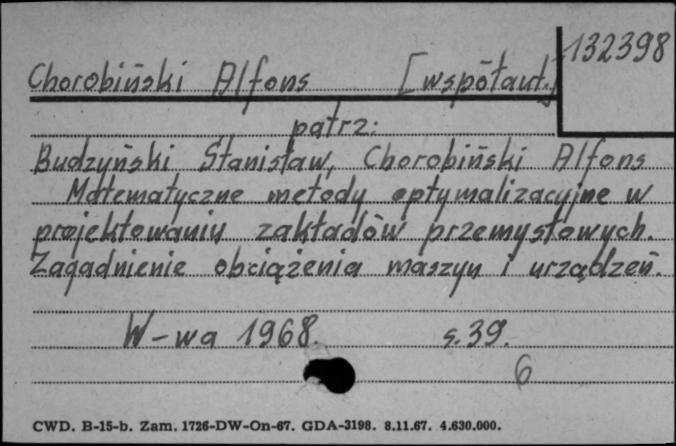 132398
Chorobiński Alfons [współaut.]
patrz:
Budzyński Stanisław, Chorobiński Alfons
Matematyczne metody optymalizacyjne w
projektowaniu zakładów przemysłowych.
Zagadnienie obciążenia maszyn i urządzeń.
W-wa 1968. s.39.
6
CWD. B-15-b. Zam. 1726-DW-On-67. GDA-3198. 8.11.67. 4.630.000.